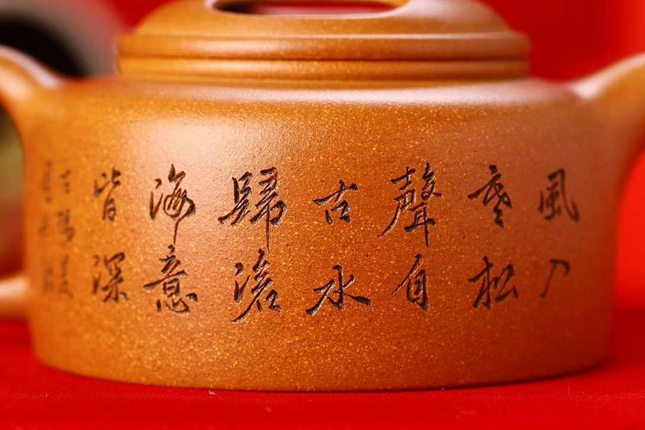 風入
寒松
聲自
古水
歸滄
海意
皆深